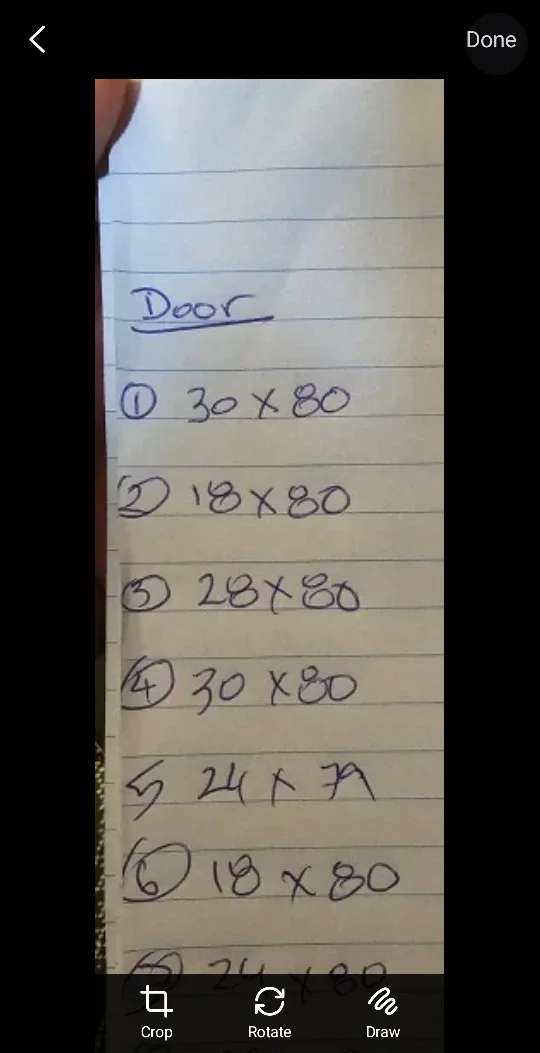 Done
Door
① 30 x 80
② 18 x 80
③ 28 x 80
④ 30 x 80
5 24 x 79
⑥ 18 x 80
24 x 80
Crop Rotate Draw